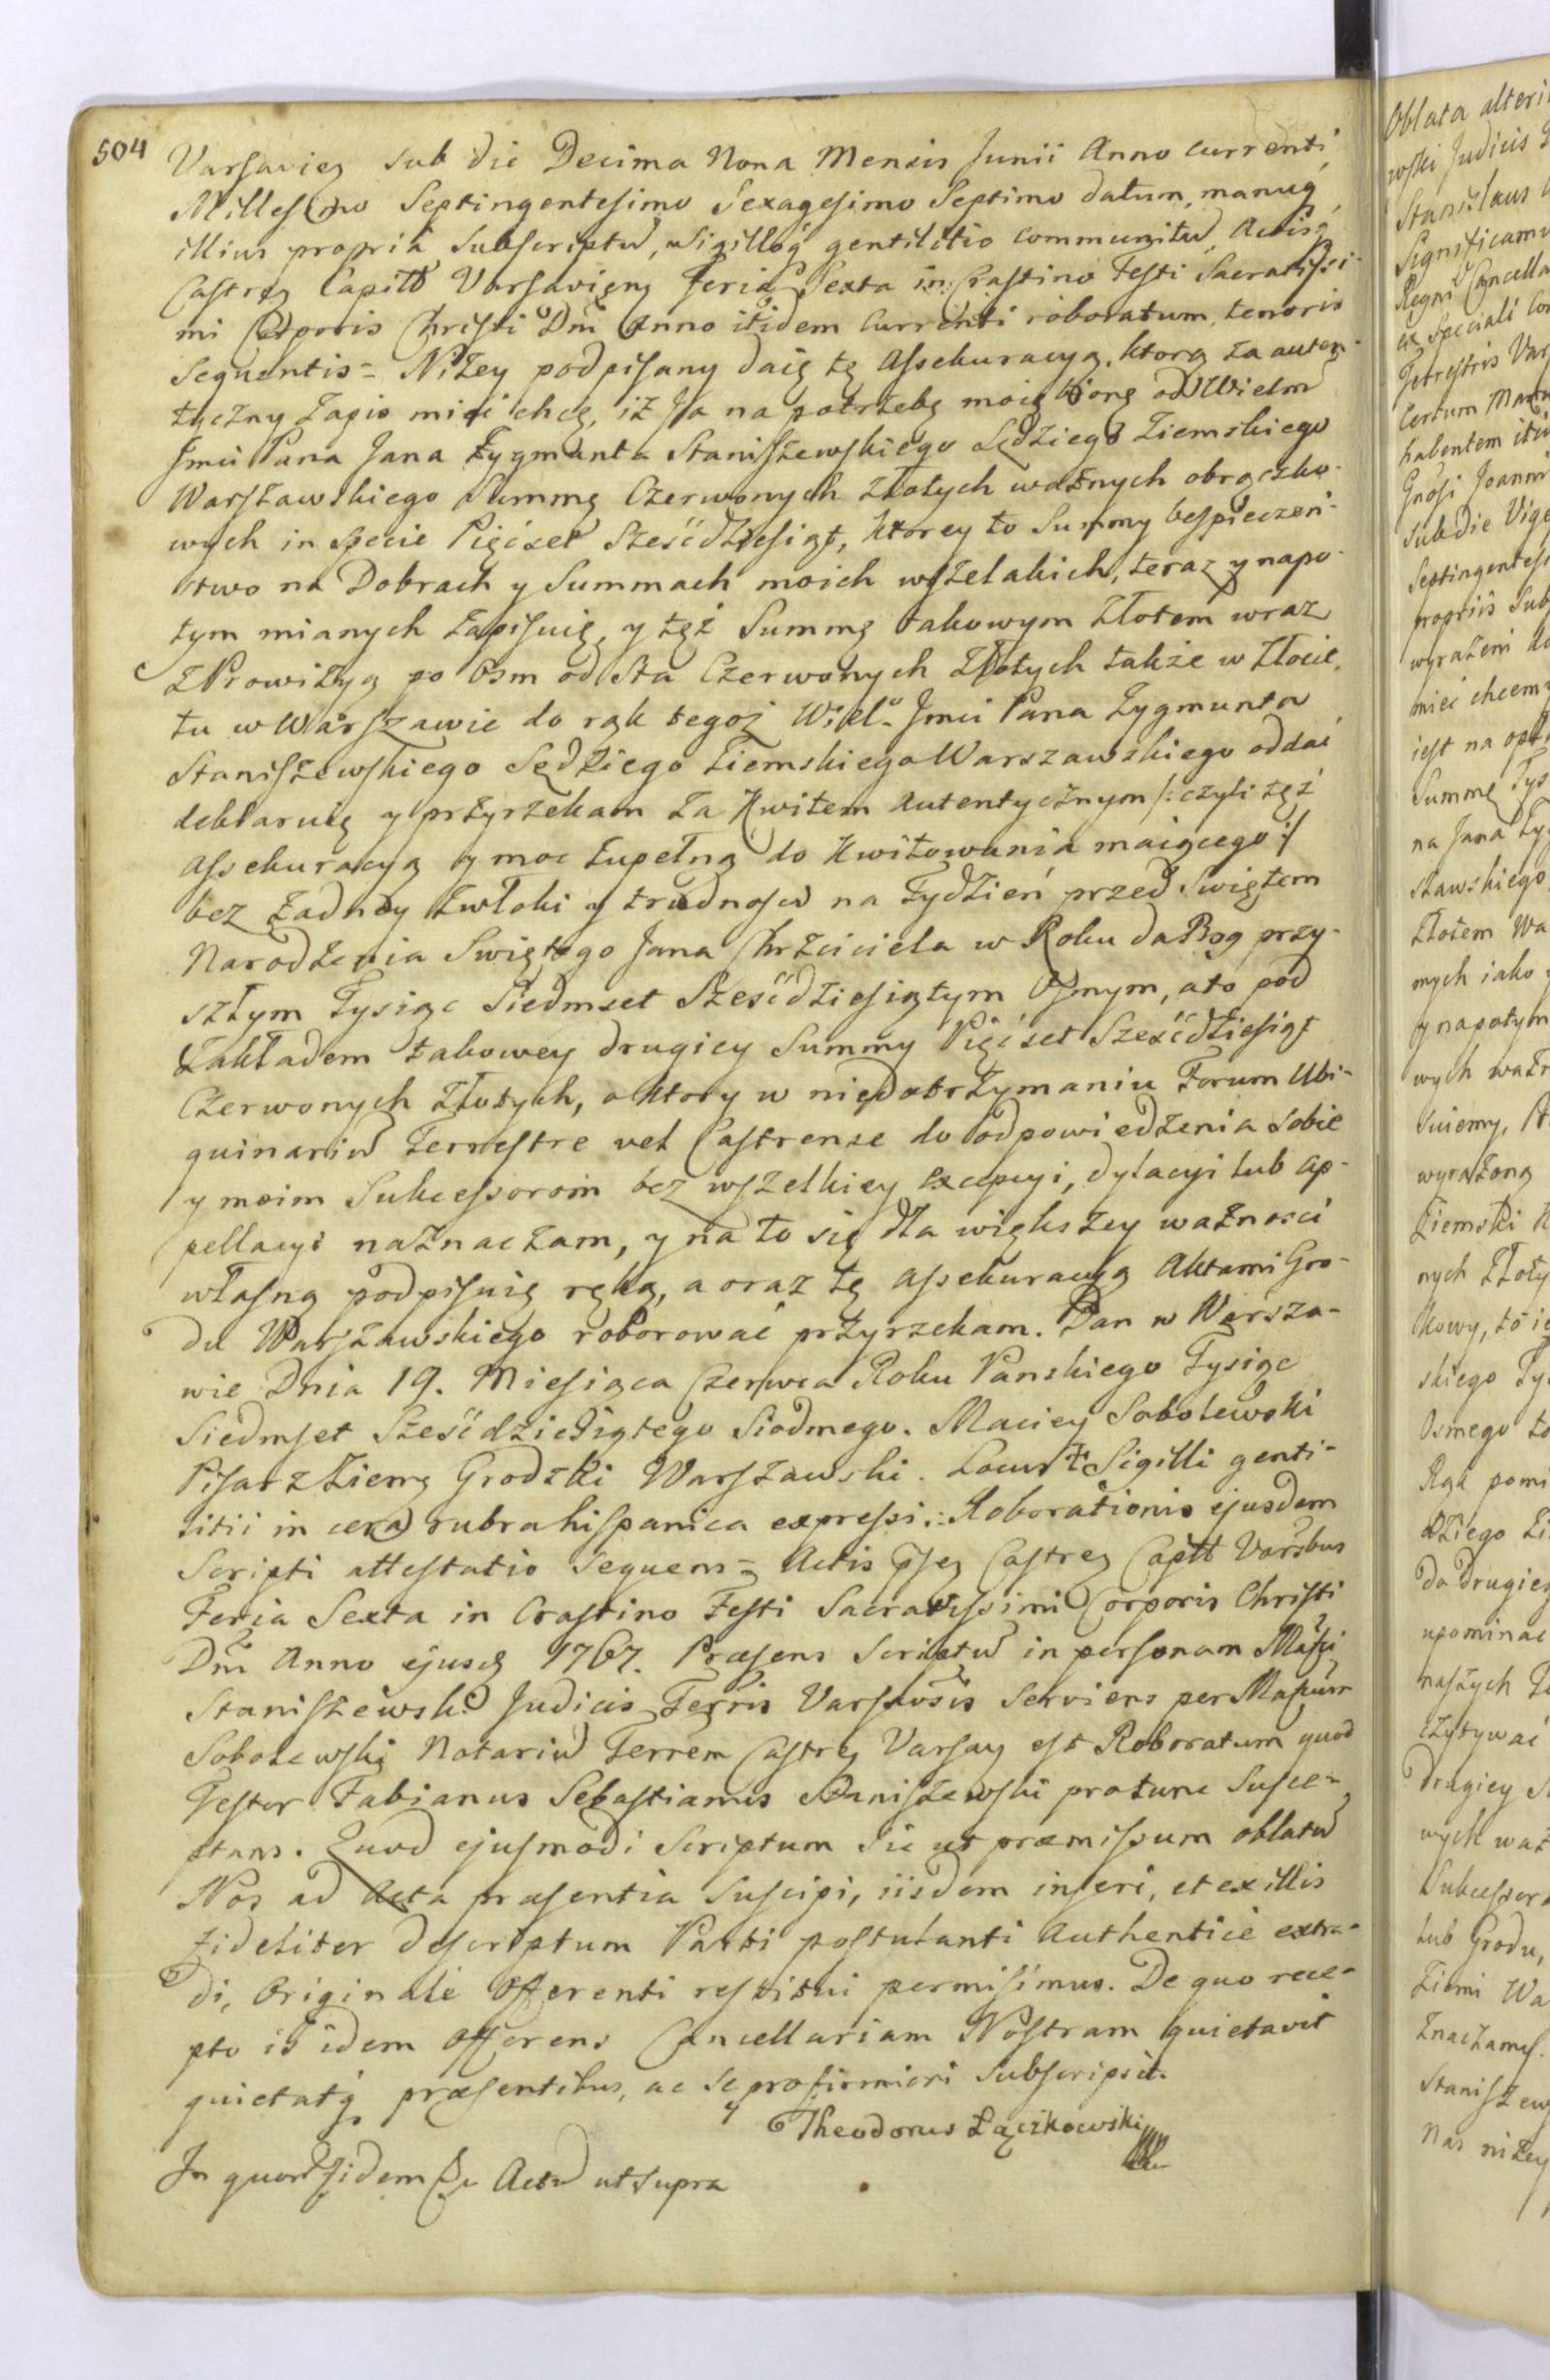 504
Varsaviey sub die Decima Nona Mensis Junii Anno currenti
Millesimo Septingentesimo Sexagesimo Septimo datum, manuq
illius propriâ subscriptũ, sigilloq gentilitio communitũ, Actisq
Castrey Capitt Varsavieny Feria Sexta in Crastino Festi Sacratissi-
mi Corporis Christi Dni Anno itidem Currenti roboratum, tenoris
sequentis = Niżey podpisany daię tę Assekuracyą, ktorą za auten-
tyczny Zapis mieć chcę, iż Ja na potrzebę moię biorę od Wielm
Jmci Pana Jana Zygmunta Staniszewskiego Sędziego Ziemskiego
Warszawskiego Summę Czerwonych Złotych ważnych obrączko-
wych in specie Pięćset Sześćdziesiąt, ktorey to Summy bespieczeń-
stwo na Dobrach y Summach moich wszelakich, teraz y napo-
tym mianych zapisuię, y tęż Summę takowym złotem wraz
z Prowizyą po Osm od Sta Czerwonych Złotych także w złocie,
tu w Warszawie do rąk tegoż Wiel. Jmci Pana Zygmunta
Staniszewskiego Sędziego Ziemskiego Warszawskiego oddać
deklaruię y przyrzekam za Kwitem Autentycznym /: czyli tęż
Assekuracyą y moc zupełną do Kwitowania maiącego :/
bez żadney zwłoki y trudności na Tydzień przed Swiętem
Narodzenia Swiętego Jana Chrzciciela w Roku da Bog przy-
szłym Tysiąc Siedmset Sześćdziesiątym Osmym, a to pod
Zakładem takowey drugiey Summy Pięćset Sześćdziesiąt
Czerwonych Złotych, o ktory w niedotrzymaniu Forum Ubi-
quinariũ Terrestre vel Castrense do odpowiedzenia sobie
y moim Sukcessorom bez wszelkiey excepcyi, dylacyi lub ap-
pellacyi naznaczam, y na to się dla większey ważności
własną podpisuię ręką, a oraz tę Assekuracyą Aktami Gro-
du Warszawskiego roborować przyrzekam. Dan w Warsza-
wie Dnia 19. Miesiąca Czerwca Roku Panskiego Tysiąc
Siedmset Sześćdziesiątego Siodmego. Maciey Sobolewski
Pisarz Ziem Grodzki Warszawski. Locus Sigilli genti-
litii in cera rubra hispanica expressi. Roborationis ejusdem
Scripti attestatio sequens = Actis pssey Castrey Captt Varsbus
Feria Sexta in Crastino Festi Sacratissimi Corporis Christi
Dni Anno ejusq 1767. Præsens Scriptũ in personam Mafci
Staniszewski Judicis Terris Varsavsis serviens per Mafcum
Sobolewski Notariũ Terrem Castrey Varsay est Roboratum quod
Testor Fabianus Sebastianus Staniszewski protunc Susce-
ptans. Quod ejusmodi Scriptum sic ut præmissum oblatũ
Nos ad Acta præsentia suscipi, iisdem inseri, et ex illis
fideliter descriptum Parti postulanti Authentice extra-
di, Originale Offerenti restitui permisimus. De quo rece-
pto itidem Offerens Cancellariam Nostram quietavit
quietatq præsentibus, ac se pro firmiori subscripsit.
Theodorus Łączkowski
In quor fidem Actũ ut supra
Oblata alteri
wski Judicis
Stanislaus
Significamu
Regni Cancella
ex speciali
Terrestris Var
Certum
habentem iti
Gnosi Joanni
sub die Vige
Septingentesi
propriis Sub
wyrażeni
mieć chcemy
iest na
Summę Tys
na Jana Zy
szawskiego
złotem Wa
mych iako
y napotym
wych ważn
suiemy,
wyrażoną
Ziemski
nych Złoty
kowy, to ie
skiego Ty
Osmego to
Rąk pomi
dziego Zi
do drugiey
upominać
naszych
czytywać
drugiey
wych waż
Sukcessor
lub Grodu,
Ziemi Wa
znaczamy.
Staniszew
Nas niżey